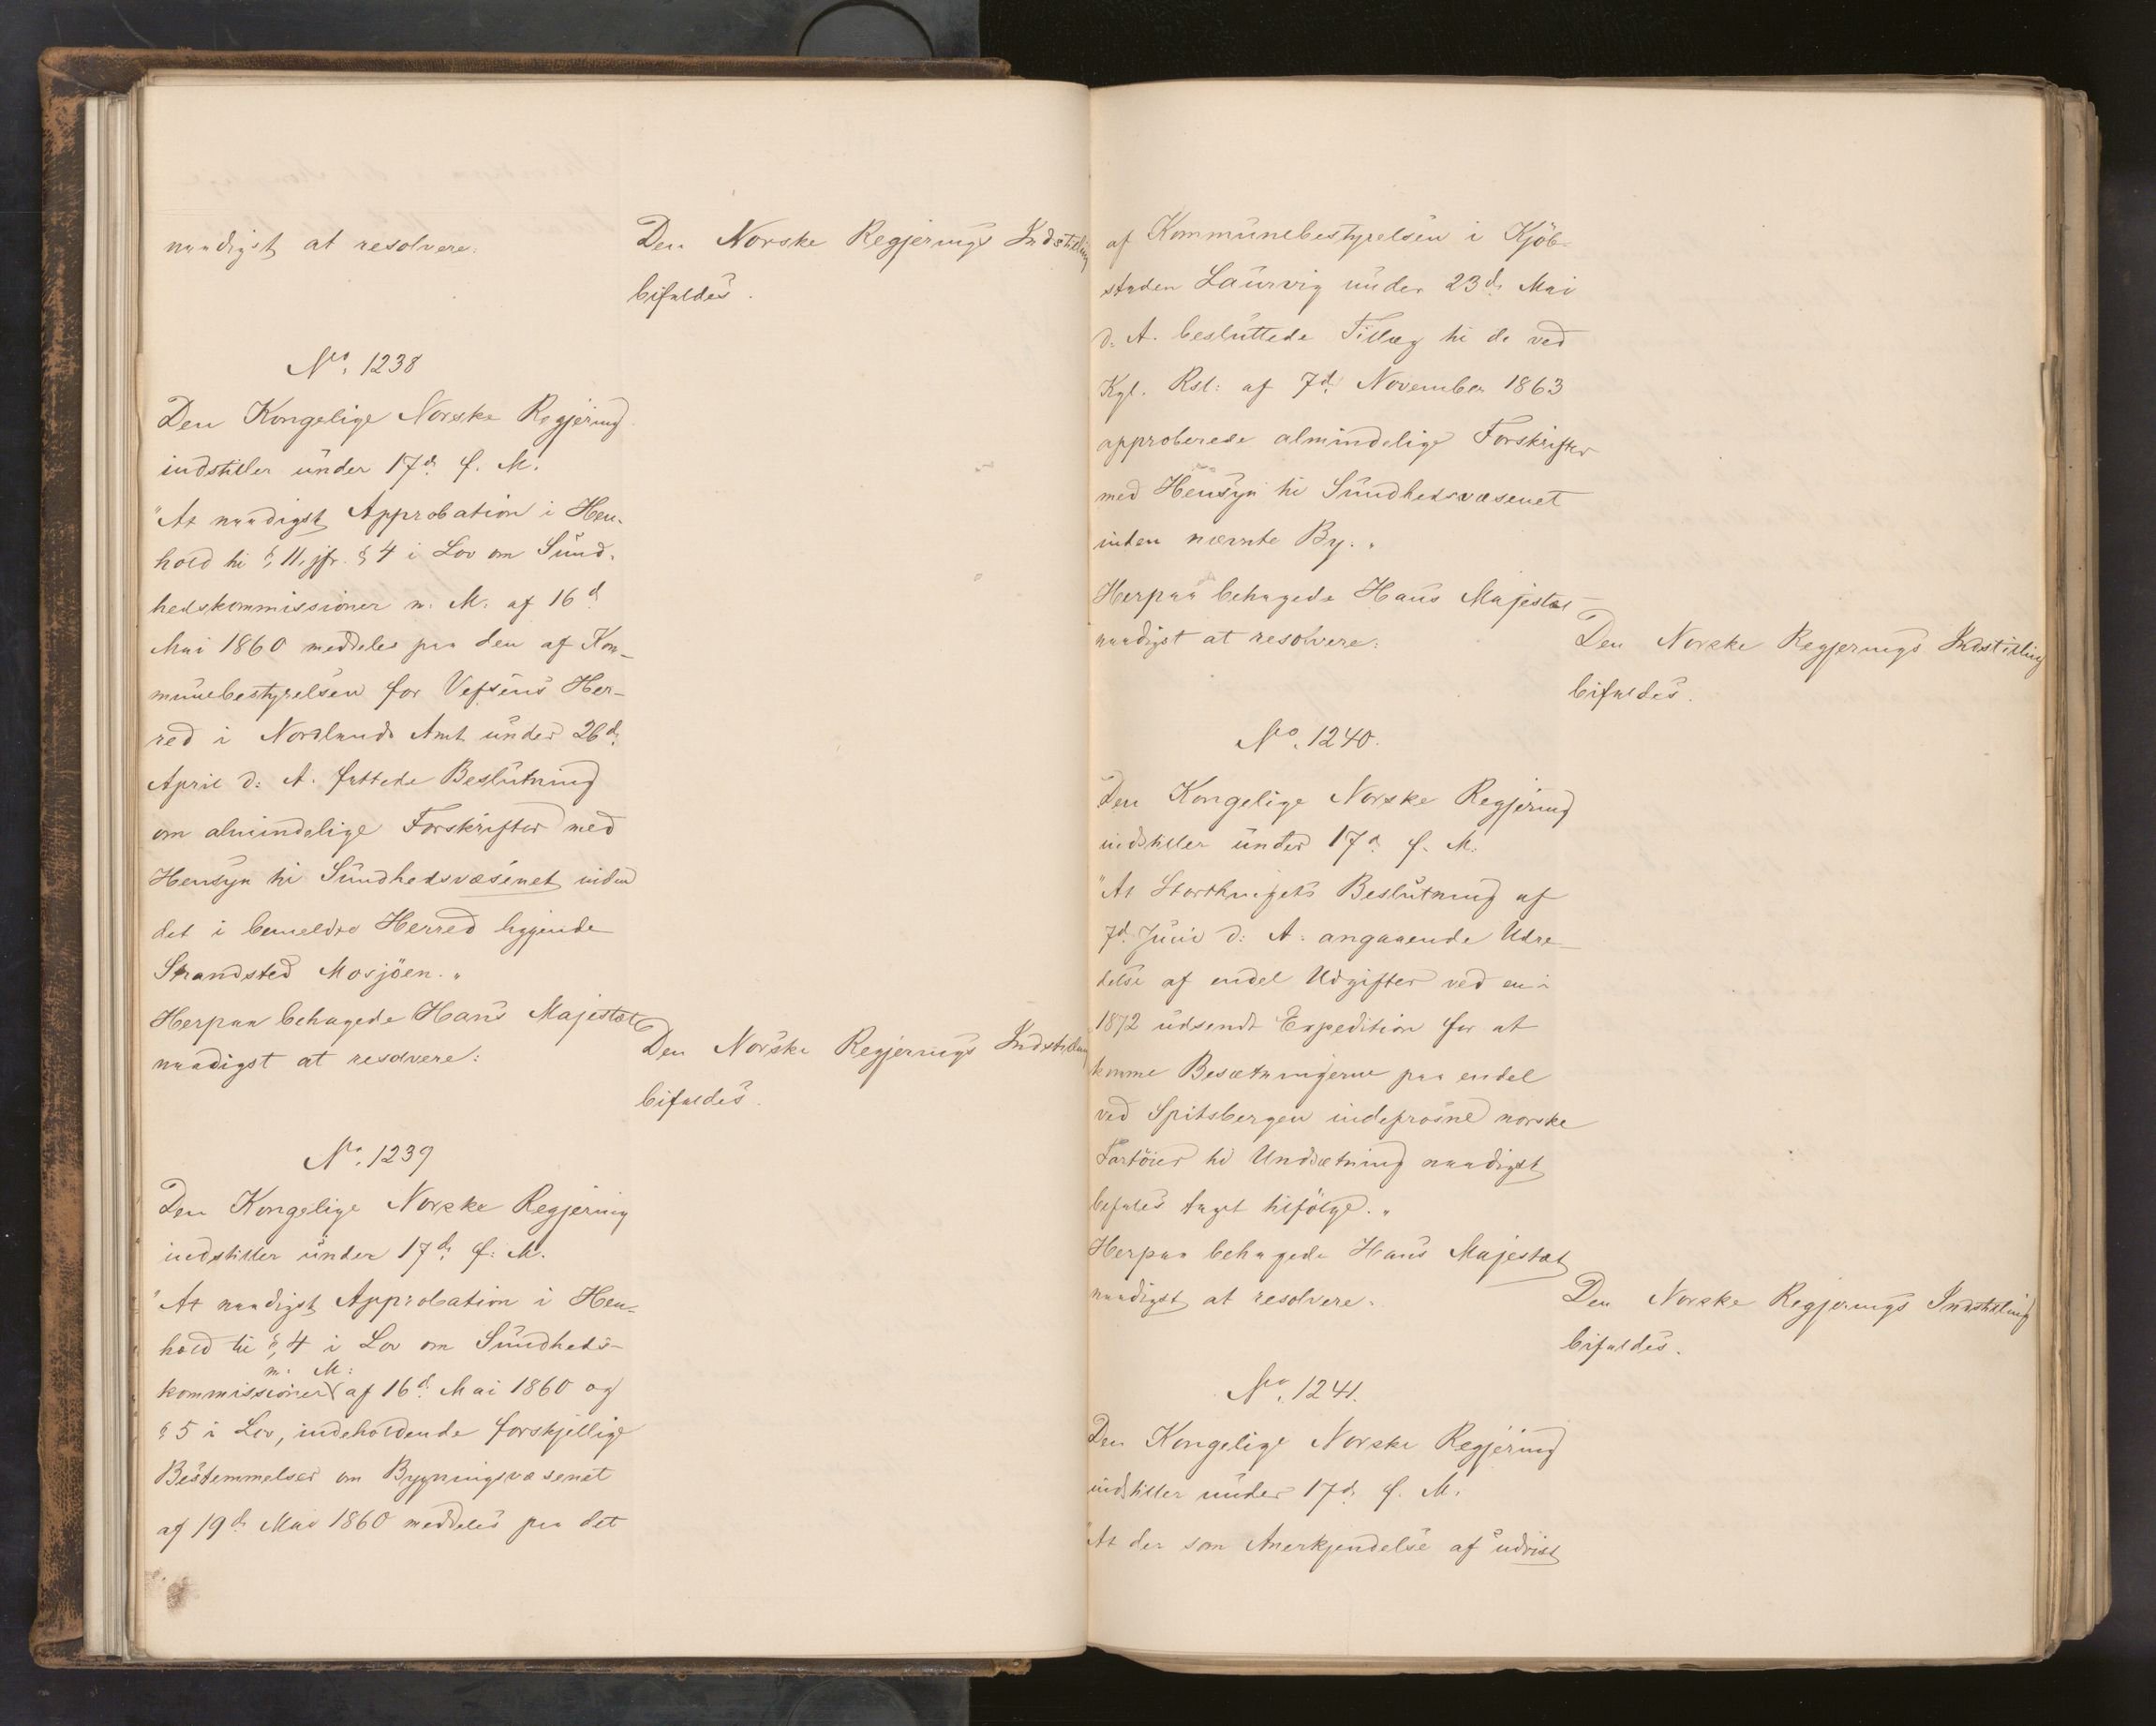 naadigst at resolvere:
Den Norske Regjerings Indstilling
bifaldes.
No. 1238
Den Kongelige Norske Regjering
indstiller under 17d. f. M.
"At naadigst Approbation i Hen-
hold til § 11, jfr. § 4 i Lov om Sund-
hedskommissioner m. M. af 16d.
Mai 1860 meddeles paa den af Kom-
munebestyrelsen for Vefsens Her-
red i Nordlands Amt under 26d.
April d: A. fattede Beslutning
om almindelige Forskrifter med
Hensyn til Sundhedsvæsenet inden
det i bemeldte Herred liggende
Strandsted Mosjöen."
Herpaa behagede Hans Majestæt
naadigst at resolvere:
Den Norske Regjerings Indstilling
bifaldes.
No. 1239
Den Kongelige Norske Regjering
indstiller under 17d. f. M.
"At naadigst Approbation i Hen-
hold til § 4 i Lov om Sundheds-
m. M:
kommissioner af 16d. Mai 1860 og
§ 5 i Lov, indeholdende forskjellige
Bestemmelser om Bygningsvæsenet
af 19d. Mai 1860 meddeles paa det
af Kommunebestyrelsen i Kjöb-
staden Laurvig under 23d. Mai
d. A. besluttede Tillæg til de ved
Kgl. Rsl: af 7d. November 1863
approberede almindelige Forskrifter
med Hensyn til Sundhedsvæsenet
inden nævnte By."
Herpaa behagede Hans Majestæt
naadigst at resolvere:
Den Norske Regjerings Indstilling
bifaldes.
No. 1240.
Den Kongelige Norske Regjering
indstiller under 17d. f. M.
"At Storthingets Beslutning af
7d. Juni d: A. angaaende Udre-
delse af endel Udgifter ved en i
1872 udsendt Expedition for at
komme Besætningerne paa endel
ved Spitsbergen indefrosne norske
Fartöier til Undsætning naadigst
befales taget tilfölge."
Herpaa behagede Hans Majestæt
naadigst at resolvere:
Den Norske Regjerings Indstilling
bifaldes.
No. 1241.
Den Kongelige Norske Regjering
indstiller under 17d. f. M.
"At der som Anerkjendelse af udvist